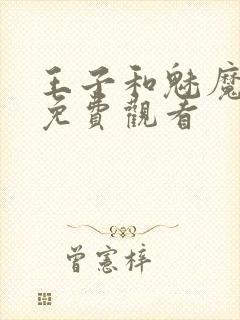 王子和魅魔
免費觀看
曾憲梓